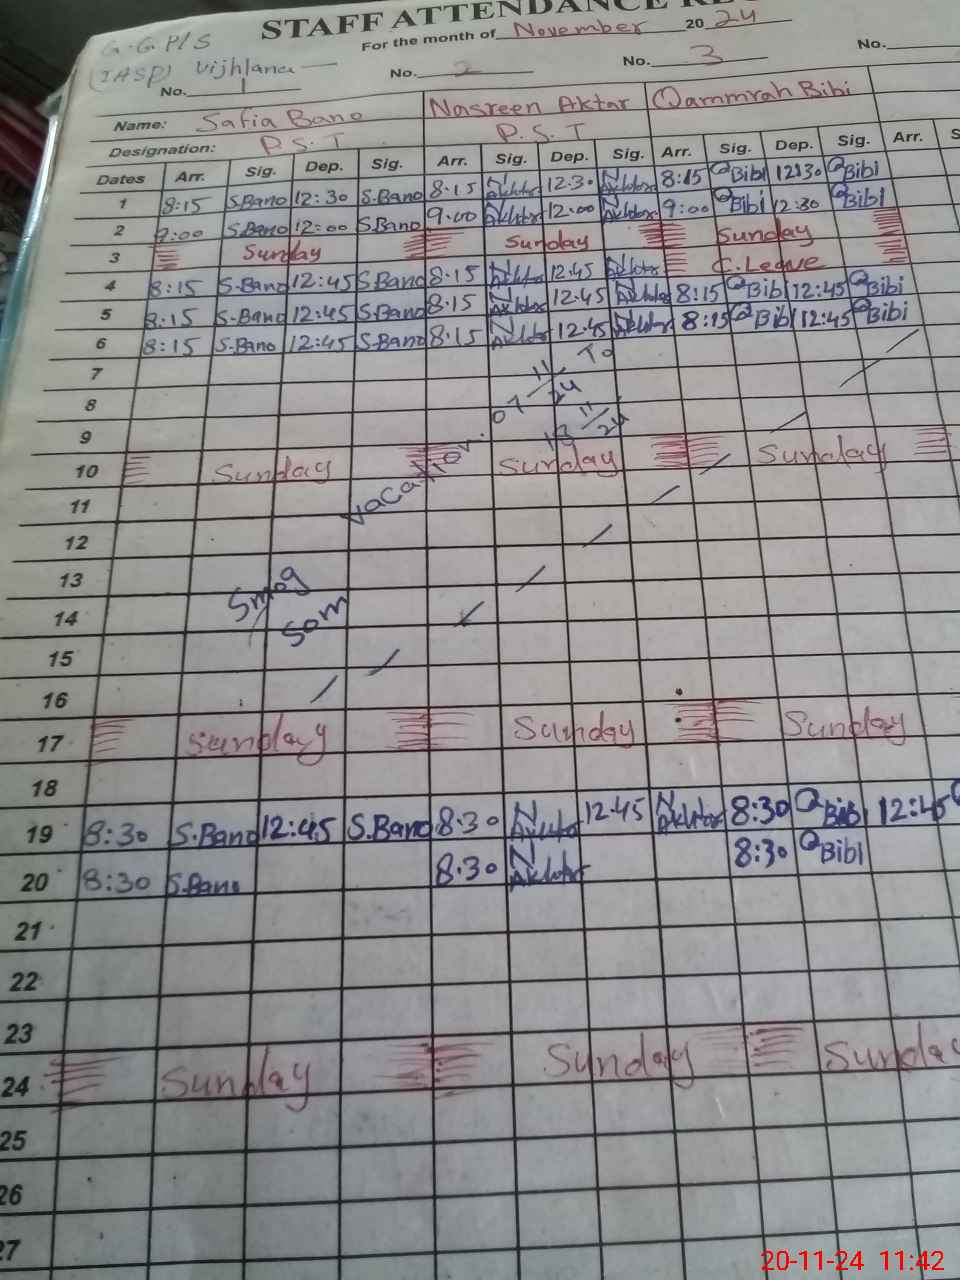 STAFF ATTENDANCE RE
G.G.P/S
For the month of November 2024
(IASP) Vijhlana
No. 1 No. 2 No. 3 No.
Name: Safia Bano Nasreen Aktar Qammrah Bibi
Designation: P.S.T P.S.T
Dates Arr. Sig. Dep. Sig. Arr. Sig. Dep. Sig. Arr. Sig. Dep. Sig. Arr. S
1 8:15 S.Bano 12:30 S.Bano 8:15 N Akhtar 12.30 N Akhtar 8:15 Q Bibi 12:30 Q Bibi
2 9:00 S.Bano 12:00 S.Bano 9:00 N Akhtar 12:00 N Akhtar 9:00 Q Bibi 12:30 Q Bibi
3 Sunday Sunday Sunday
4 8:15 S.Bano 12:45 S.Bano 8:15 N Akhtar 12.45 N Akhtar C.Leave
5 8:15 S.Bano 12:45 S.Bano 8:15 N Akhtar 12.45 N Akhtar 8:15 Q Bibi 12:45 Q Bibi
6 8:15 S.Bano 12:45 S.Bano 8:15 N Akhtar 12.45 N Akhtar 8:15 Q Bibi 12:45 Q Bibi
7
8
9
10 Sunday Sunday Sunday
Smog Vacation. 07/11/24 To
13/11/24
11
12
13
14
15
16
17 Sunday Sunday Sunday
18
19 8:30 S.Bano 12:45 S.Bano 8:30 N Akhtar 12.45 N Akhtar 8:30 Q Bibi 12:45 Q
20 8:30 S.Bano 8:30 N Akhtar 8:30 Q Bibi
21
22
23
24 Sunday Sunday Sunday
25
26
27
20-11-24 11:42